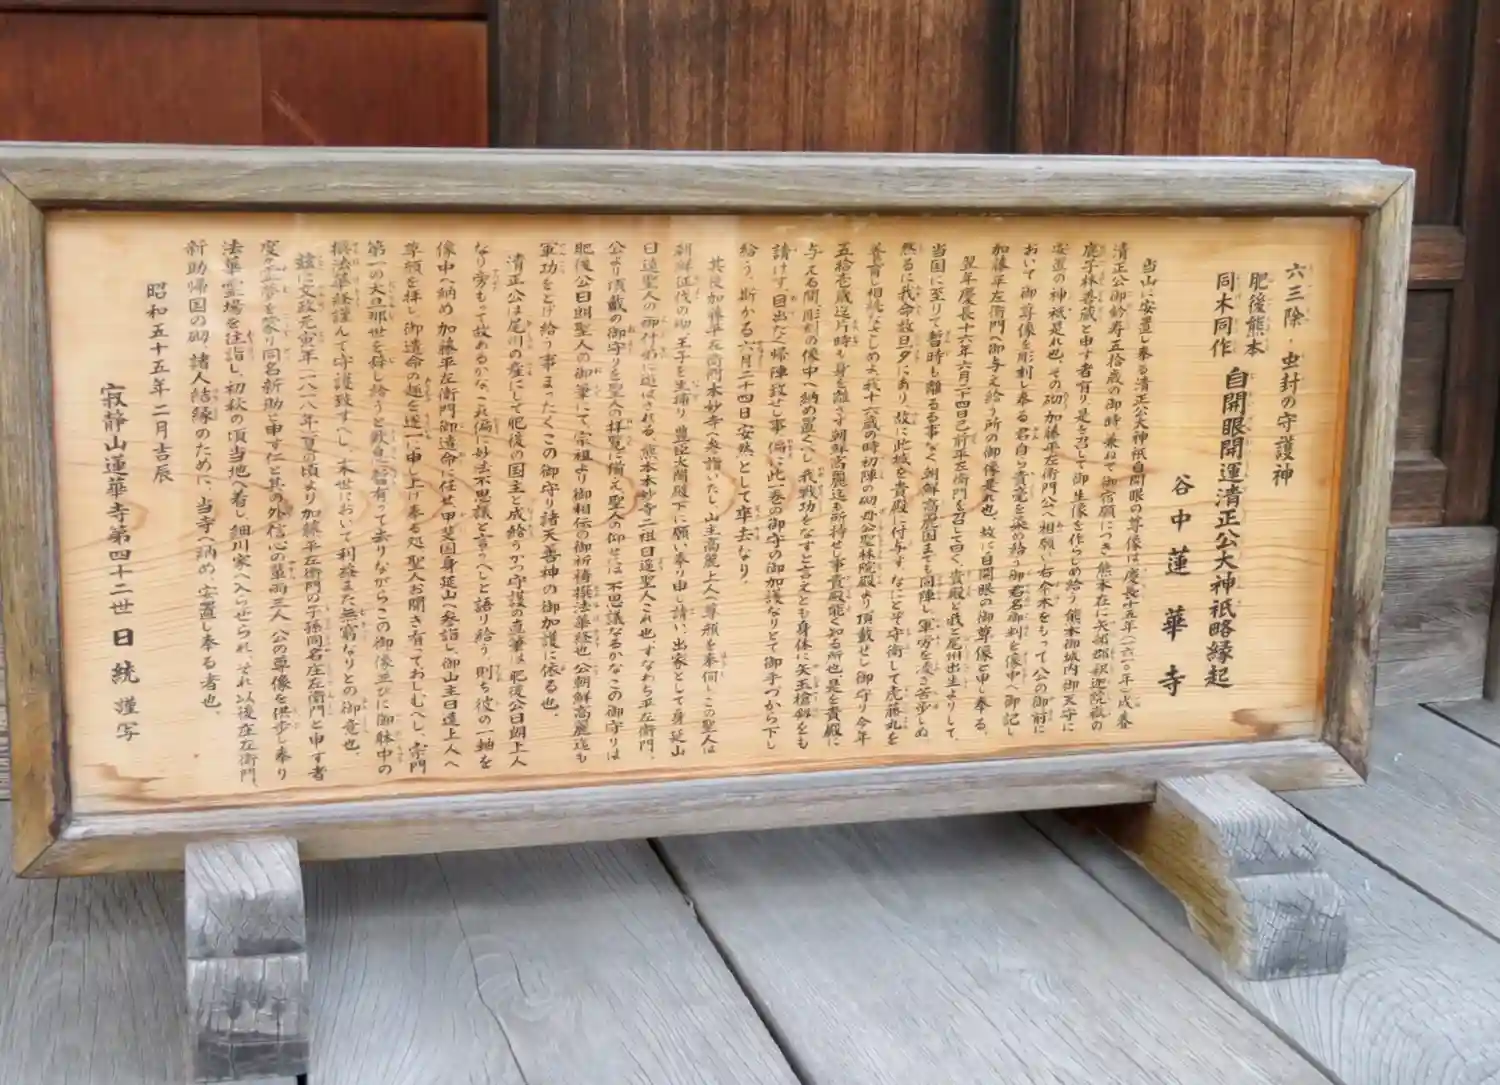 六三除・虫封の守護神
肥後熊本
同木同作
自開眼開運清正公大神祇略縁起
谷中蓮華寺
当山に安置し奉る清正公大神祇自開眼の尊像は慶長十五年(一六一〇年)戌春
清正公御齢寿五拾歳の御時兼ねて御宿願につき熊本在に矢部郡釈迦院祇の
鹿子林善蔵と申す者有り是を召して御生像を作らしめ給う熊本御城内御天守に
安置の神祇是れ也、その砌加藤平左衛門公へ相願い右余木をもって公の御前に
おいて御尊像を彫刻し奉る君自ら貴毫を染め給う御右名御判を像中へ御記し
加藤平左衛門へ御与え給う所の御像是れ也、故に自開眼の御尊像と申し奉る、
翌年慶長十六年六月二十四日己前平左衛門を召して曰く、貴殿と我と尾州出生よりして、
当国に至りて暫時も離るる事なく朝鮮高麗国までも同陣し軍労を凌ぎ苦歩しぬ
然るに我命故旦夕にあり、故に此城を貴殿に付与す、なにとぞ守衛して虎藤丸を
養育し相続なさしめよ、我十六歳の時初陣の砌母公聖林院殿より頂載せし御守り今年
五拾壱歳迄片時も身を離さず朝鮮高麗迄も所持せし事貴殿能く知る所也、是を貴殿に
与える間彫刻の像中へ納め置くべし、我戦功をなすと言えとも身体に矢玉槍鉾をも
請けず、目出たく帰陣致せし事偏に此一巻の御守の御加護なりとて御手づから下し
給う、斯かる六月二十四日安然として卒去なり、
其後加藤平左衛門本妙寺へ参詣いたし山主高麗上人へ尊顔を奉伺しこの聖人は
朝鮮征伐の砌、王子を生捕り豊臣太閤殿下に願い奉り申し請い、出家として身延山
日遠聖人の御仆弟に遊ばされる、熊本本妙寺二祖日遥聖人これ也、すなわち平左衛門、
公より頂載の御守りを聖人の拝覧に備え聖人の仰せには不思議なるかなこの御守りは
肥後公日朗聖人の御筆にて、宗祖より御相伝の御祈祷撰法華経也、公朝鮮高麗迄も
軍功をとげ給う事まったくこの御守り諸天善神の御加護に依る也、
清正公は尾州の産にして肥後の国主と成給うかつ守護の直筆は肥後公日朗上人
なり旁もって故あるかな、これ偏に妙法不思議と言つべしと語り給う、則ち彼の一軸を
像中へ納め加藤平左衛門御遺命に任せ、甲斐国身延山へ参詣し、御山主日遠上人へ
尊顔を拝し御遺命の趣を逐一申し上げ奉る処聖人お聞き有っておしむべし、宗門
第一の大旦那世を辞し給うと歎息暫有って去りながらこの御像並びに御躰中の
撰法華経謹んで守護致すべし、末世において利益また無窮なりとの御意也、
茲に文政元寅年一八一八年、夏の頃より加藤平左衛門の子孫同名庄左衛門と申す者
度々霊夢を蒙り同名新助と申す仁と其の外信心の輩両三人、公の尊像を供歩し奉り
法華霊場を往詣し、初秋の頃当地へ着し、細川家へ入らせられ、それ以後庄左衛門、
新助帰国の砌、諸人結縁のために、当寺へ納め、安置し奉る者也、
昭和五十五年二月吉辰
寂静山蓮華寺第四十二世 日統 謹写